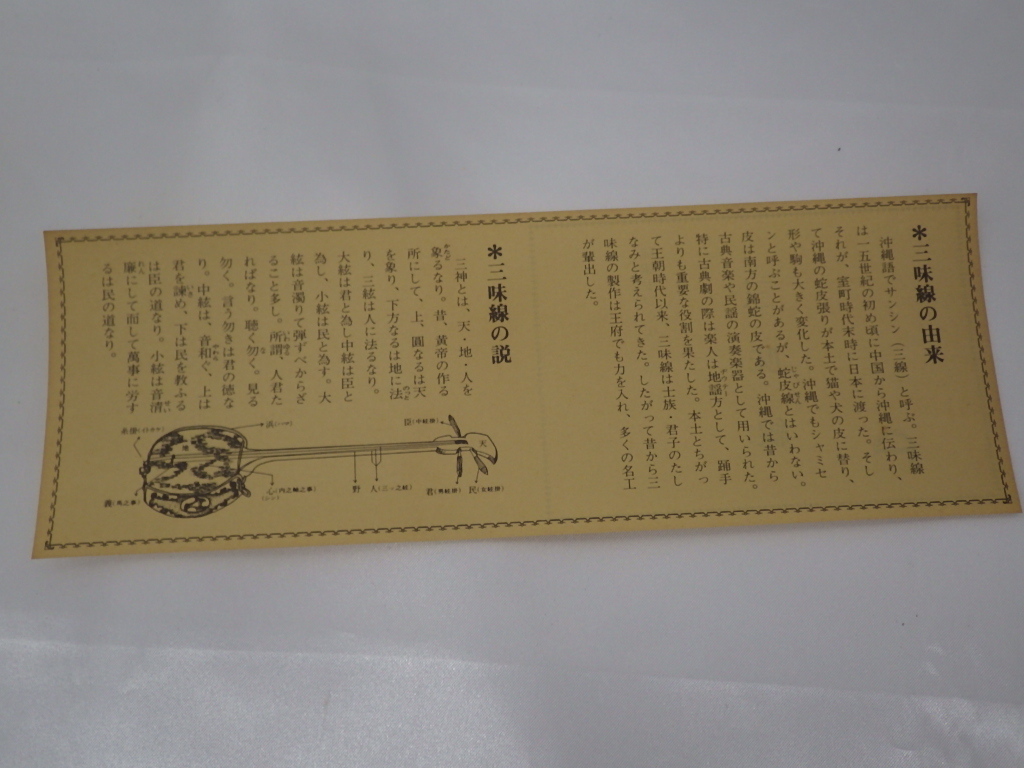 ＊三味線の由来
沖縄語でサンシン（三線）と呼ぶ。三味線
は一五世紀の初め頃に中国から沖縄に伝わり、
それが、室町時代末時に日本に渡った。そし
て沖縄の蛇皮張りが本土で猫や犬の皮に替り、
形や駒も大きく変化した。沖縄でもシャミセ
ンと呼ぶことがあるが、蛇皮線とはいわない。
皮は南方の錦蛇の皮である。沖縄では昔から
古典音楽や民謡の演奏楽器として用いられた。
特に古典劇の際は楽人は地謡方として、踊手
よりも重要な役割を果たした。本土とちがっ
て王朝時代以来、三味線は士族・君子のたし
なみと考えられてきた。したがって昔から三
味線の製作は王府でも力を入れ、多くの名工
が輩出した。
＊三味線の説
三神とは、天・地・人を
象るなり。昔、黄帝の作る
所にして、上、圓なるは天
を象り、下方なるは地に法
り、三絃は人に法るなり。
大絃は君と為し中絃は臣と
為し、小絃は民と為す。大
絃は音濁りて弾ずべからざ
ること多し。所謂、人君た
ればなり。聴く勿く。見る
勿く。言う勿きは君の徳な
り。中絃は、音和ぐ、上は
君を諫め、下は民を教ふる
は臣の道なり。小絃は音清
廉にして而して萬事に労す
るは民の道なり。
天
臣(中絃掛)
民(女絃掛)
君(男絃掛)
人(三ッ之絃)
野